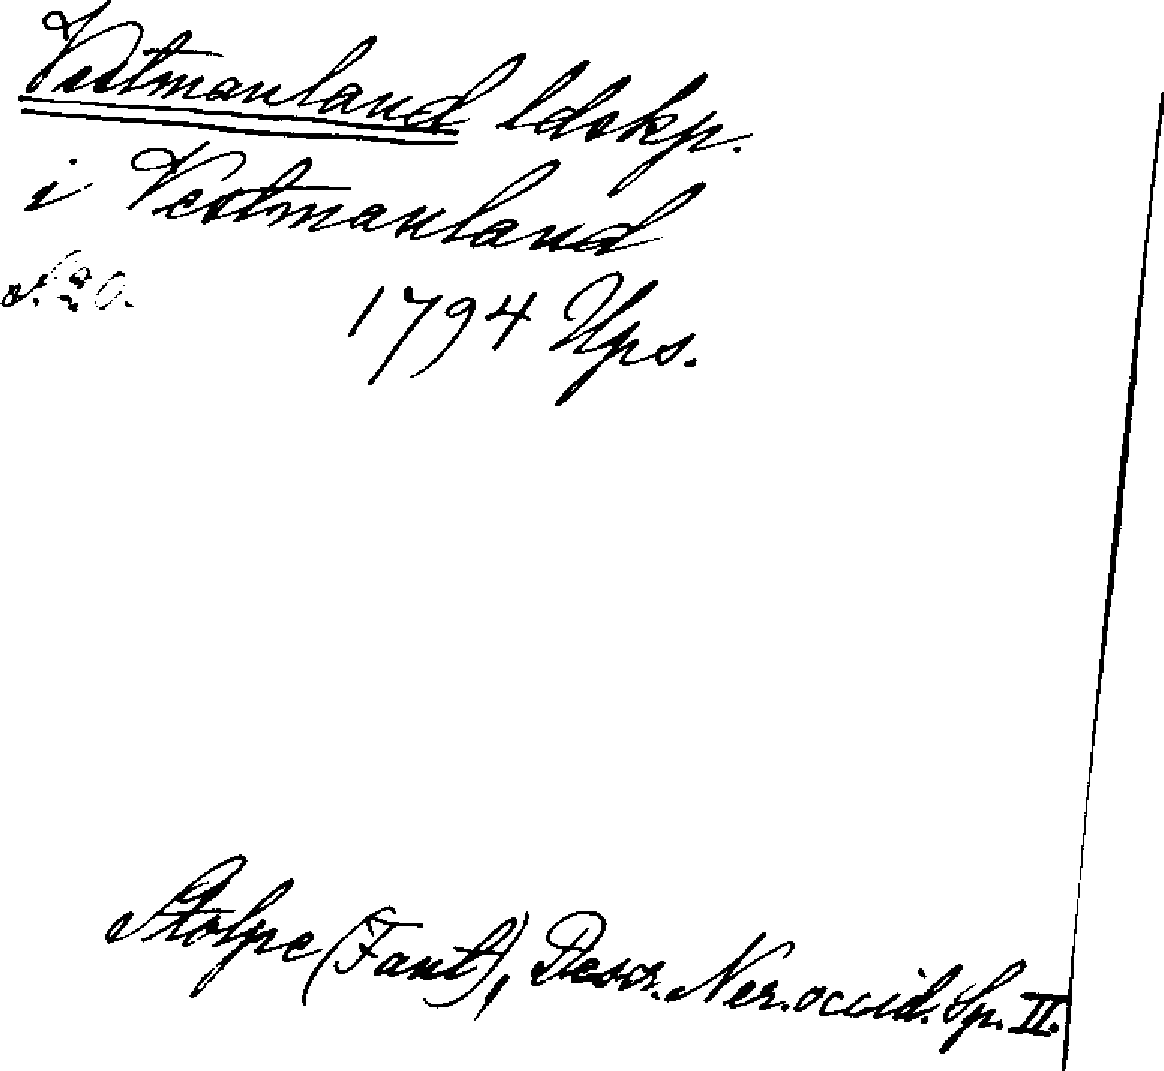 Vestmanland ldskp.
i Vestmanland
S. 20.
1794 Ups.
Stolpe (Fant), Descr. Ner. occid. Sp. II.